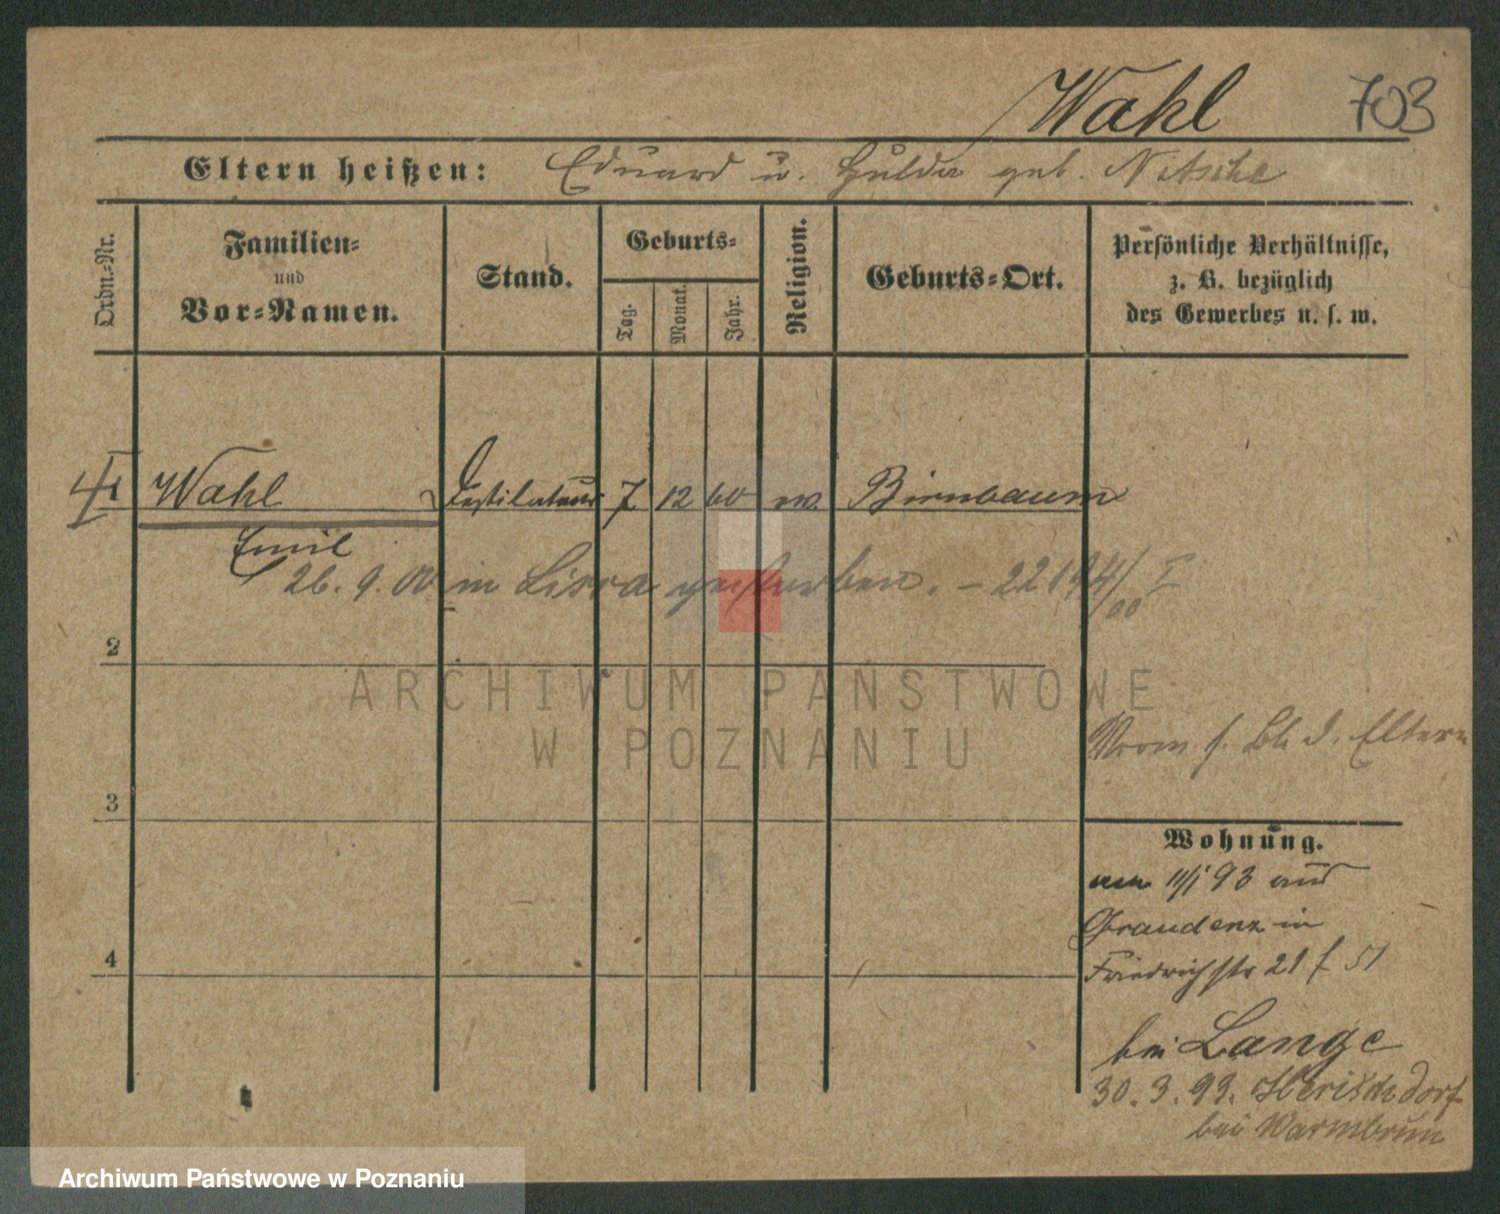 Wahl 703
Eltern heißen: Eduard u. Hulda geb. Nitsche
Ordn.-Nr.
Familien-
und
Vor-Namen.
Stand.
Geburts-
Tag.
Monat.
Jahr.
Religion.
Geburts-Ort.
Persönliche Verhältnisse,
z. B. bezüglich
des Gewerbes u. s. w.
1 Wahl Destilateur 7 12 60 ev. Birnbaum
Emil
26. 9. 00 in Lissa gestorben. – 22194/00 I
2
ARCHIWUM PAŃSTWOWE
W POZNANIU
d. Eltern
3
Wohnung.
am 11/1 93 aus
Graudenz in
4
Friedrichstr 21
bei Lange
30. 3. 93. Herischdorf
bei Warmbrunn
Archiwum Państwowe w Poznaniu